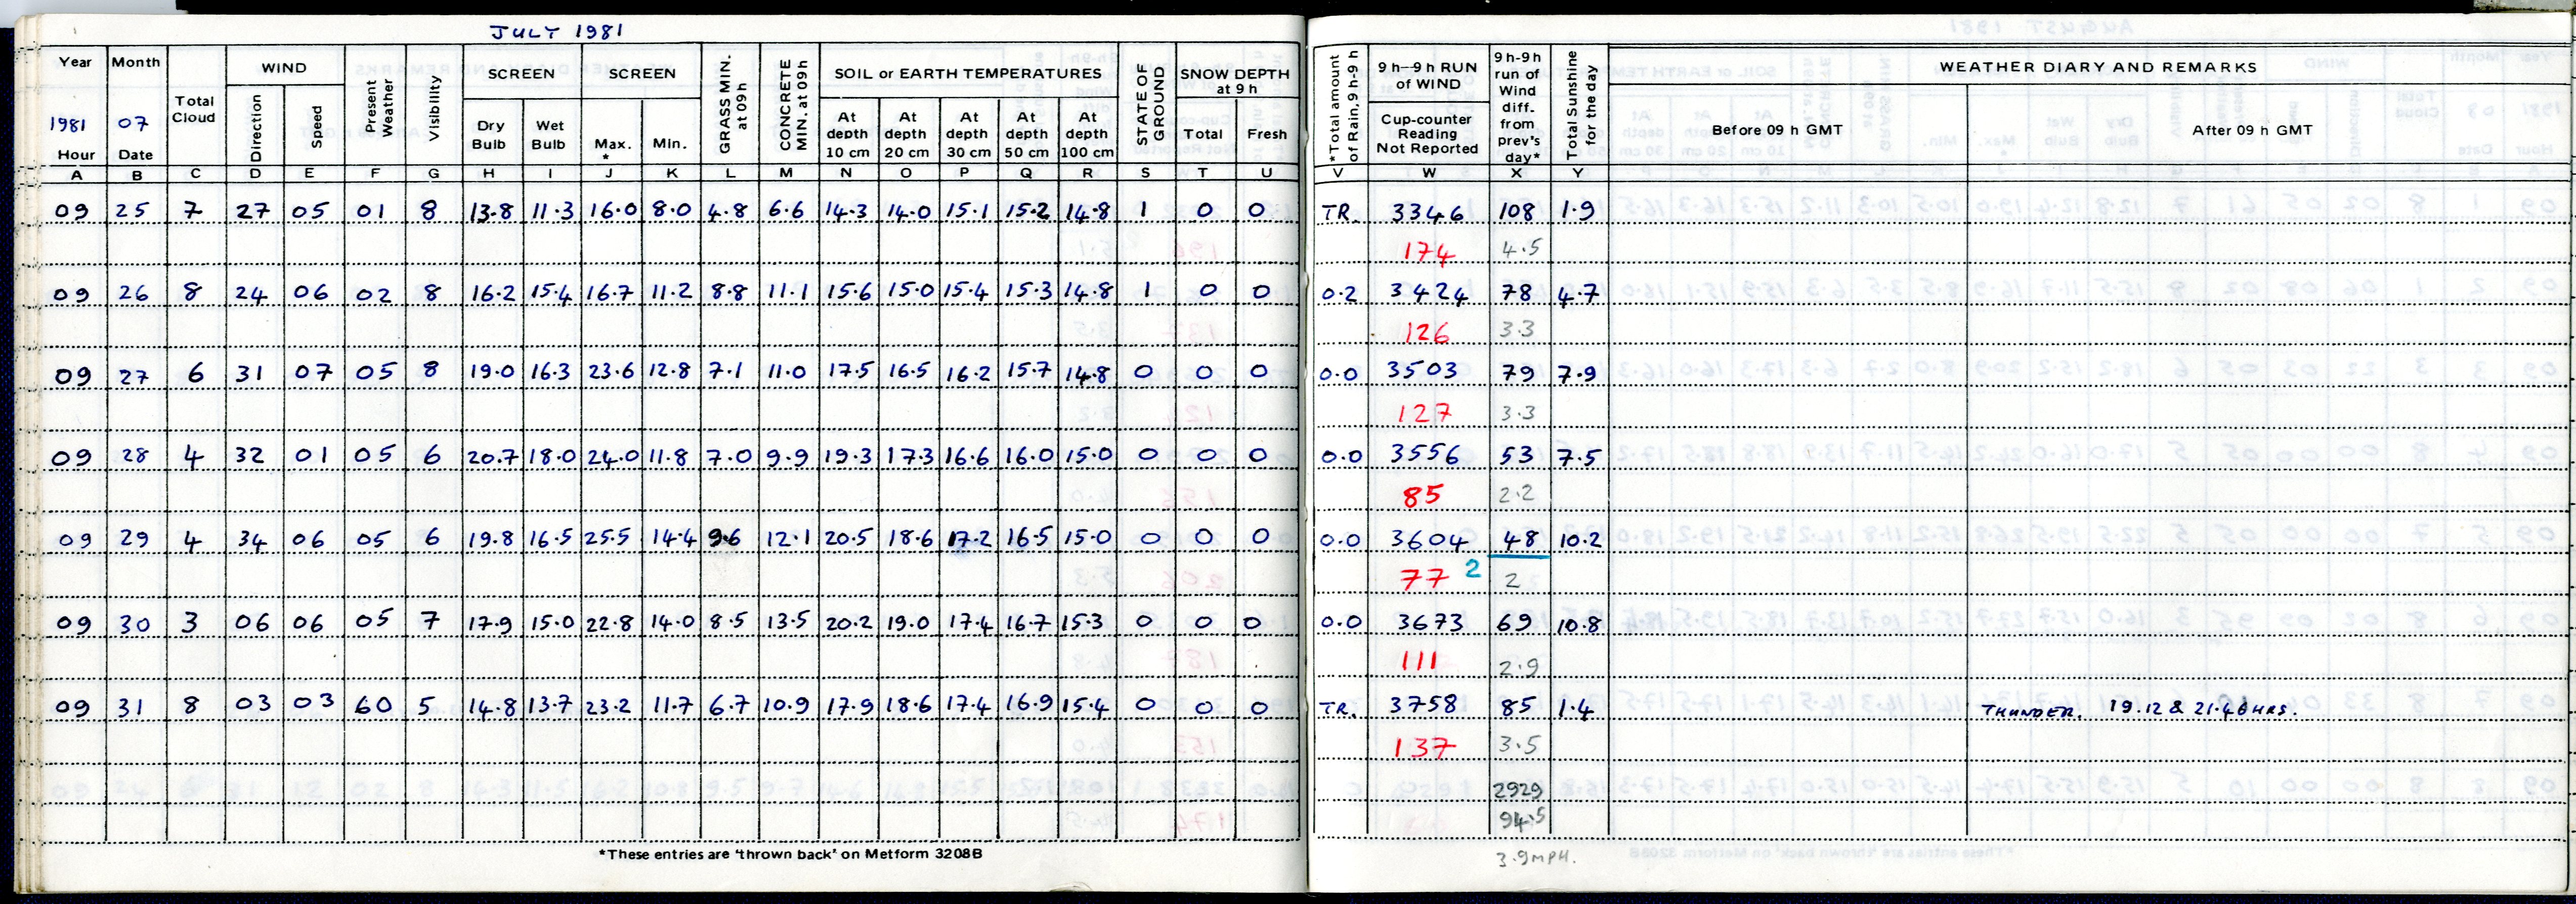 JULY 1981
Year Month Total Cloud WIND Present Weather Visibility SCREEN SCREEN GRASS MIN. at 09h CONCRETE MIN. at 09h SOIL or EARTH TEMPERATURES STATE OF GROUND SNOW DEPTH at 9 h *Total amount of Rain, 9h-9h 9 h—9 h RUN of WIND 9 h-9 h run of Wind diff. from prev's day* Total Sunshine for the day WEATHER DIARY AND REMARKS
1981 07 Direction Speed Dry Bulb Wet Bulb Max. * Min. At depth 10 cm At depth 20 cm At depth 30 cm At depth 50 cm At depth 100 cm Total Fresh Cup-counter Reading Not Reported Before 09 h GMT After 09 h GMT
Hour Date
A B C D E F G H I J K L M N O P Q R S T U V W X Y
09 25 7 27 05 01 8 13.8 11.3 16.0 8.0 4.8 6.6 14.3 14.0 15.1 15.2 14.8 1 0 0 TR. 3346 108 1.9
174 4.5
09 26 8 24 06 02 8 16.2 15.4 16.7 11.2 8.8 11.1 15.6 15.0 15.4 15.3 14.8 1 0 0 0.2 3424 78 4.7
126 3.3
09 27 6 31 07 05 8 19.0 16.3 23.6 12.8 7.1 11.0 17.5 16.5 16.2 15.7 14.8 0 0 0 0.0 3503 79 7.9
127 3.3
09 28 4 32 01 05 6 20.7 18.0 24.0 11.8 7.0 9.9 19.3 17.3 16.6 16.0 15.0 0 0 0 0.0 3556 53 7.5
85 2.2
09 29 4 34 06 05 6 19.8 16.5 25.5 14.4 9.6 12.1 20.5 18.6 17.2 16.5 15.0 0 0 0 0.0 3604 48 10.2
77 2 2
09 30 3 06 06 05 7 17.9 15.0 22.8 14.0 8.5 13.5 20.2 19.0 17.4 16.7 15.3 0 0 0 0.0 3673 69 10.8
111 2.9
09 31 8 03 03 60 5 14.8 13.7 23.2 11.7 6.7 10.9 17.9 18.6 17.4 16.9 15.4 0 0 0 TR. 3758 85 1.4 THUNDER. 19.12 & 21.40HRS.
137 3.5
2929
94.5
*These entries are 'thrown back' on Metform 3208B
3.9MPH.